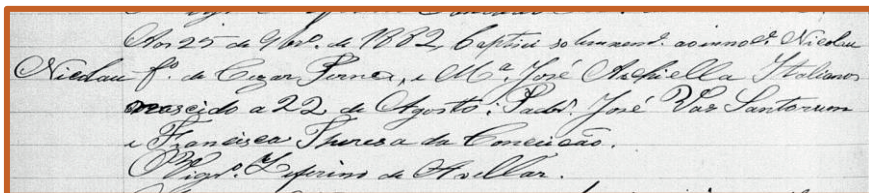 Aos 25 de 9bro. de 1882, baptisei solemnemte. ao innoce. Nicolau
Nicolau fo. de Cezar Perner, e Ma. José Aschiella Italianos
nascido a 22 de Agosto: Padros. José Vaz Santorum
e Francisca Thereza da Conceição.
O Vigro. Zeferino de Avellar.